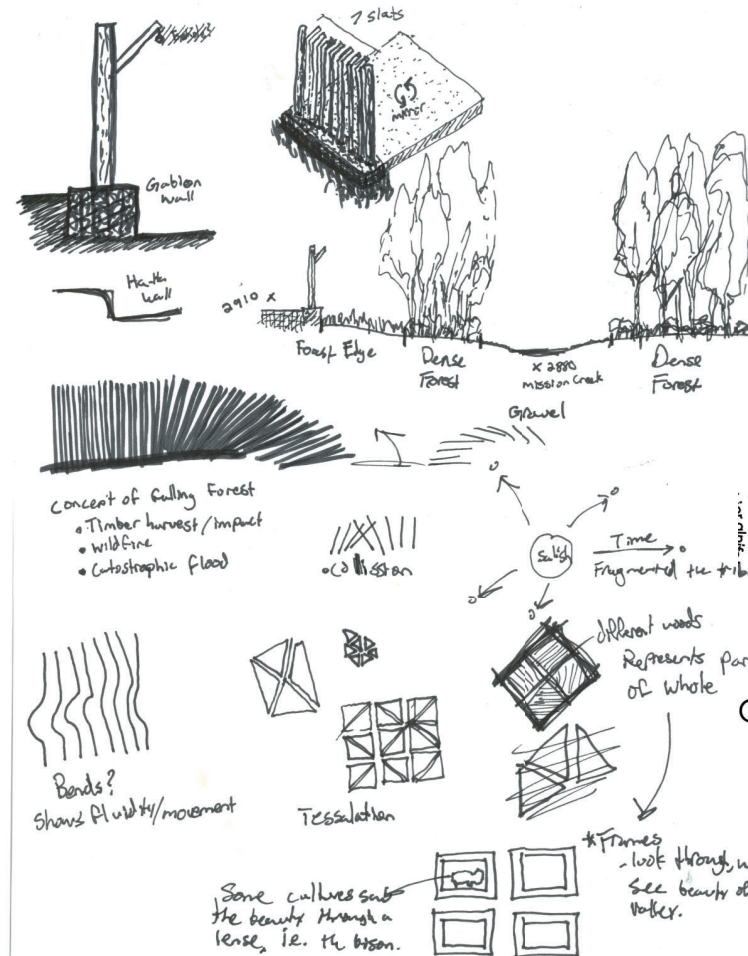 7 slats
mirror
Gabion
wall
Ha-Ha
wall
2910 x
Forest Edge
Dense
Forest
x 2880
Mission Creek
Gravel
Dense
Forest
Concept of falling Forest
• Timber harvest/impact
• wildfire
• Catostrophic flood
• Collission
Salish
Time
Fragmented the
different woods
Represents
of whole
Bends?
Shows fluidity/movement
Tessalation
* Frames
- look through,
see beauty
valley.
Some cultures saw
the beauty through a
lense, i.e. the bison.